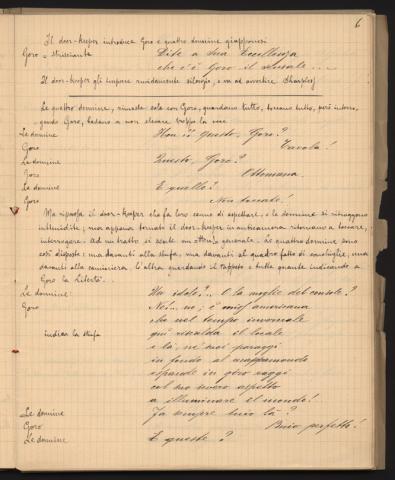 6
Il door-keeper introduce Goro e quattro donnine giapponesi
Goro = strisciante Dite a Sua Eccellenza
che c'è Goro il nakodo...
Il door-keeper gli impone ruvidamente silenzio, e va ad avvertire Sharpless
Le quattro donnine, rimaste sole con Goro, guardano tutto, toccano tutto, però interro-
gando Goro, badano a non elevare troppo la voce
Le donnine Non è questo, Goro?
Goro Tavola!
Le donnine Questo, Goro?
Goro Ottomana.
Le donnine E quello?
Goro Non toccate!
Ma ripassa il door-keeper che fa loro cenno di aspettare, e le donnine si ritraggono
intimidite; ma appena tornato il door-keeper in anticamera ritornano a toccare,
interrogare. Ad un tratto si sente un generale. Le quattro donnine sono
così disposte: una davanti alla stufa, una davanti al quadro fatto di conchiglie, una
davanti alla caminiera l'altra guardando il tappeto e tutte quante indicando a
Goro la Libertà...
Le donnine: Un idolo?.. O la moglie del console?
Goro No!.. no; è miss americana
che nel tempo invernale
indica la stufa qui riscalda il locale
e là, nei suoi paraggi
in fondo al mappamondo
espande in giro raggi
col suo severo aspetto
a illuminare il mondo!
Le donnine Fa sempre buio là?
Goro Buio perfetto!
Le donnine E queste?